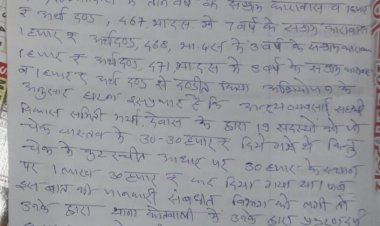 के तीन वर्ष के सश्रम कारावास व 1 हजार
रू अर्थ दण्ड, 467 भादस में 7 वर्ष के सश्रम कारावास
1 हजार रू अर्थदण्ड, 468, भादस के 3 वर्ष के सश्रम कारावास
1 हजार रू अर्थदण्ड, 471 भादस में 3 वर्ष के सश्रम कारावास
व 1 हजार रू अर्थ दण्ड से दण्डीत किया अभियोजन के
अनुसार घटना इसप्रकार है कि अन्त्यव्यवसाई सहकारी
विकास समिती मर्या. देवास के द्वारा 19 सदस्यों को जो
चेक वास्तव के 30-30 हजार रू दिये गये थे किन्तु
चेक के कुटरचीत आधार पर 30 हजार के स्थान
पर 1 लाख 30 हजार रू कर दिया गया था जब
इस बात की जानकारी संबंधीत विभाग को लगी तो
उनके द्वारा थाना कोतवाली में उनके द्वारा